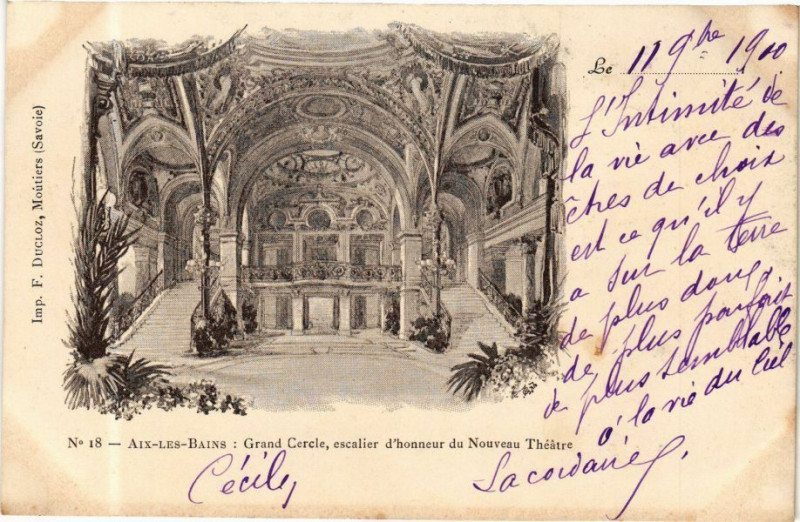 Imp. F. DUCLOZ, Moûtiers (Savoie)
Le 11 9bre 1900
L'Intimité de
la vie avec des
êtres de choix
est ce qu'il y
a sur la terre
de plus doux,
de plus parfait
de plus semblable
à la vie du Ciel
Lacordaire.
No 18 — AIX-LES-BAINS : Grand Cercle, escalier d'honneur du Nouveau Théâtre
Cécily